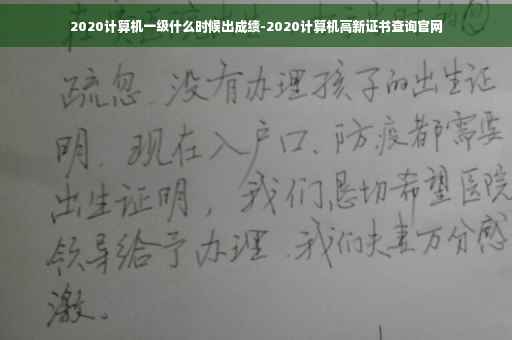 2020计算机一级什么时候出成绩-2020计算机高新证书查询官网
疏忽、没有办理孩子的出生证
明、现在入户口、防疫都需要
出生证明，我们恳切希望医院
领导给予办理、我们夫妻万分感
激。